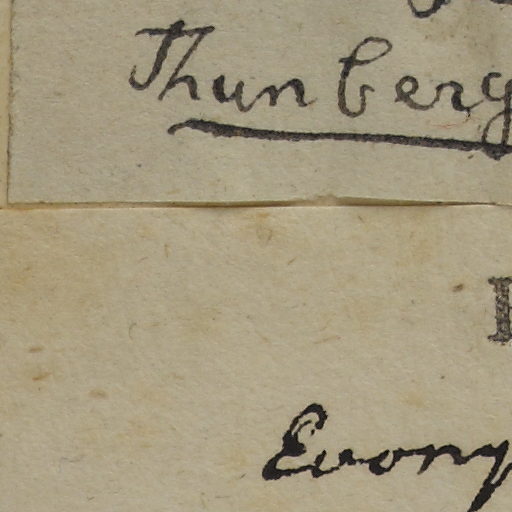 Thunberg
Evony